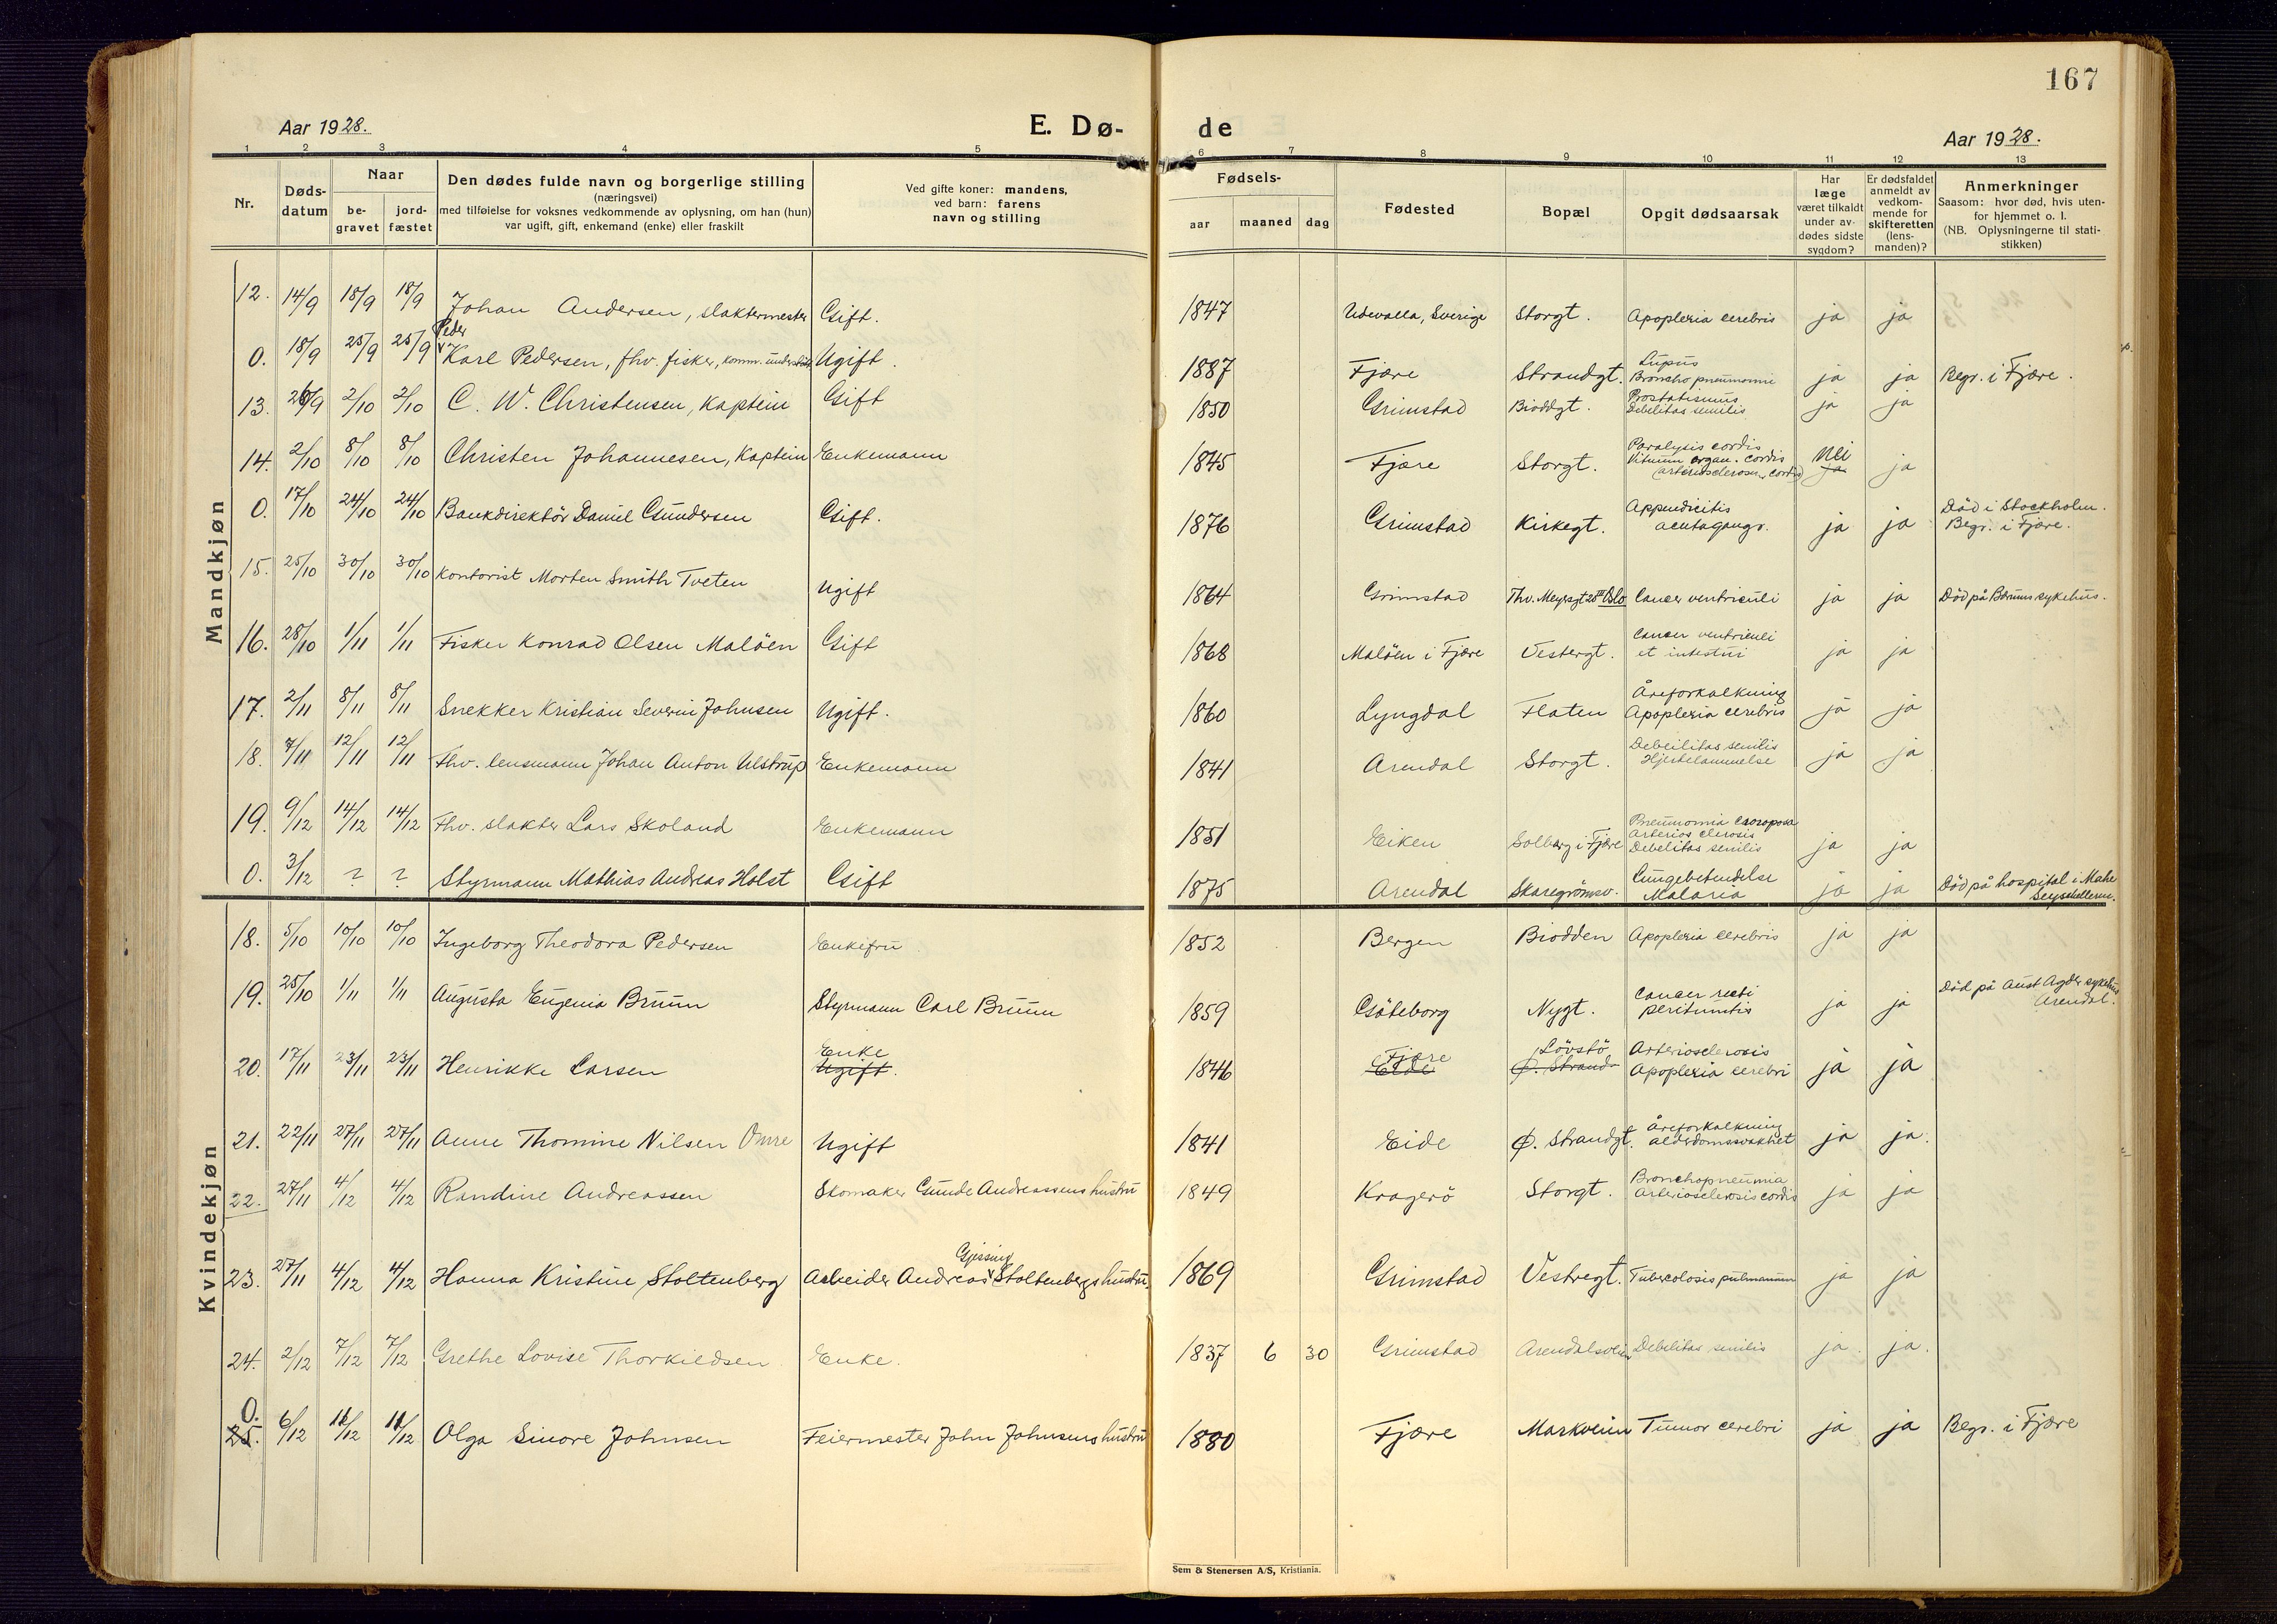 167
Aar 1928.
E. Dø-
de
Aar 1928.
1 2 3 4 5 6 7 8 9 10 11 12 13
Nr.
Døds-
datum
Naar
be-
gravet
jord-
fæstet
Den dødes fulde navn og borgerlige stilling
(næringsvei)
med tilføielse for voksnes vedkommende av oplysning, om han (hun)
var ugift, gift, enkemand (enke) eller fraskilt
Ved gifte koner: mandens,
ved barn: farens
navn og stilling
Fødsels-
aar
maaned
dag
Fødested
Bopæl
Opgit dødsaarsak
Har
læge
været tilkaldt
under av-
dødes sidste
sygdom?
Er dødsfaldet
anmeldt av
vedkom-
mende for
skifteretten
(lens-
manden)?
Anmerkninger
Saasom: hvor død, hvis uten-
for hjemmet o. l.
(NB. Oplysningerne til stati-
stikken)
Mandkjøn
12. 14/9 18/9 18/9 Johan Andersen, slaktermester Gift. 1847 Udevalla, Sverige Storgt. Apoplexia cerebris ja ja
Peder
0. 18/9 25/9 25/9 Karl Pedersen, fhv. fisker, komm. Ugift. 1887 Fjære Strandgt. Lupus
Broncho pneumoni ja ja Begr. i Fjære.
13. 26/9 2/10 2/10 C. W. Christensen, kaptein Gift 1850 Grimstad Bioddgt. Prostatismus
Debelitas senilis ja ja
14. 2/10 8/10 8/10 Christen Johannesen, kaptein Enkemann 1845 Fjære Storgt. Paralysis cordis
Vitium organ. cordis
(arteriosclerosis cordis) nei ja ja
0. 17/10 24/10 24/10 Bankdirektör Daniel Gundersen Gift. 1876 Grimstad Kirkegt. Appendicitis
acutagangr. ja ja Död i Stockholm.
Begr. i Fjære.
15. 25/10 30/10 30/10 Kontorist Morten Smith Tveten Ugift 1864 Grimstad Thv. Meyersgt 28 Oslo Cancer ventriculi ja ja Död på Bærums sykehus.
16. 28/10 1/11 1/11 Fisker Konrad Olsen Malöen Gift 1868 Malöen i Fjære Vestergt. Cancer ventriculi
et intestini ja ja
17. 2/11 8/11 8/11 Snekker Kristian Severin Johnsen Ugift. 1860 Lyngdal Flaten Åreforkalkning
Apoplexia cerebris ja ja
18. 7/11 12/11 12/11 Fhv. lensmann Johan Anton Ulstrup Enkemann 1841 Arendal Storgt. Debeilitas senilis
Hjertelammelse ja ja
19. 9/12 14/12 14/12 Fhv. slakter Lars Skoland Enkemann 1851 Eiken Solberg i Fjære Pneumonia crouposa
Arterios clerosis
Debelitas senilis ja ja
0. 3/12 ? ? Styrmann Mathias Andreas Holst Gift 1875 Arendal Skaregrömsv. Lungebetendelse
Malaria ja ja Död på hospital i Mahe
Seyschellerne.
Kvindekjøn
18. 5/10 10/10 10/10 Ingeborg Theodora Pedersen Enkefru. 1852 Bergen Biodden Apoplexia cerebris ja ja
19. 25/10 1/11 1/11 Augusta Eugenia Bruun Styrmann Carl Bruun 1859 Göteborg Nygt. Cancer recti
peritunitis ja ja Död på Aust Agder sykehus
Arendal.
20. 17/11 23/11 23/11 Henrikke Larsen Enke
Ugift. 1846 Fjære
Eide Lövstö
Ø. Strand- Arteriosclerosis
Apoplexia cerebri ja ja
21. 22/11 27/11 27/11 Anne Thomine Nilsen Omre Ugift 1841 Eide Ø. Strandgt. Åreforkalkning
alderdomssvakhet ja ja.
22. 27/11 4/12 4/12 Randine Andreassen Skomaker Gunde Andreassens hustru 1849 Kragerö Storgt. Bronchopneumia
Arteriosclerosis cordis ja ja
Gjessing
23. 27/11 4/12 4/12 Hanna Kristine Stoltenberg Arbeider Andreas Stoltenbergs hustru. 1869 Grimstad Vestregt. Tubercolosis pulmanum ja ja
24. 2/12 7/12 7/12 Grethe Lovise Thorkildsen Enke. 1837 6 30 Grimstad Arendalsveien Debelitas senilis ja. ja.
0.
25. 6/12 11/12 11/12 Olga Sinore Johnsen Feiermester John Johnsens hustru 1880 Fjære Markveien Tumor cerebri ja ja Begr. i Fjære
Sem & Stenersen A/S, Kristiania.